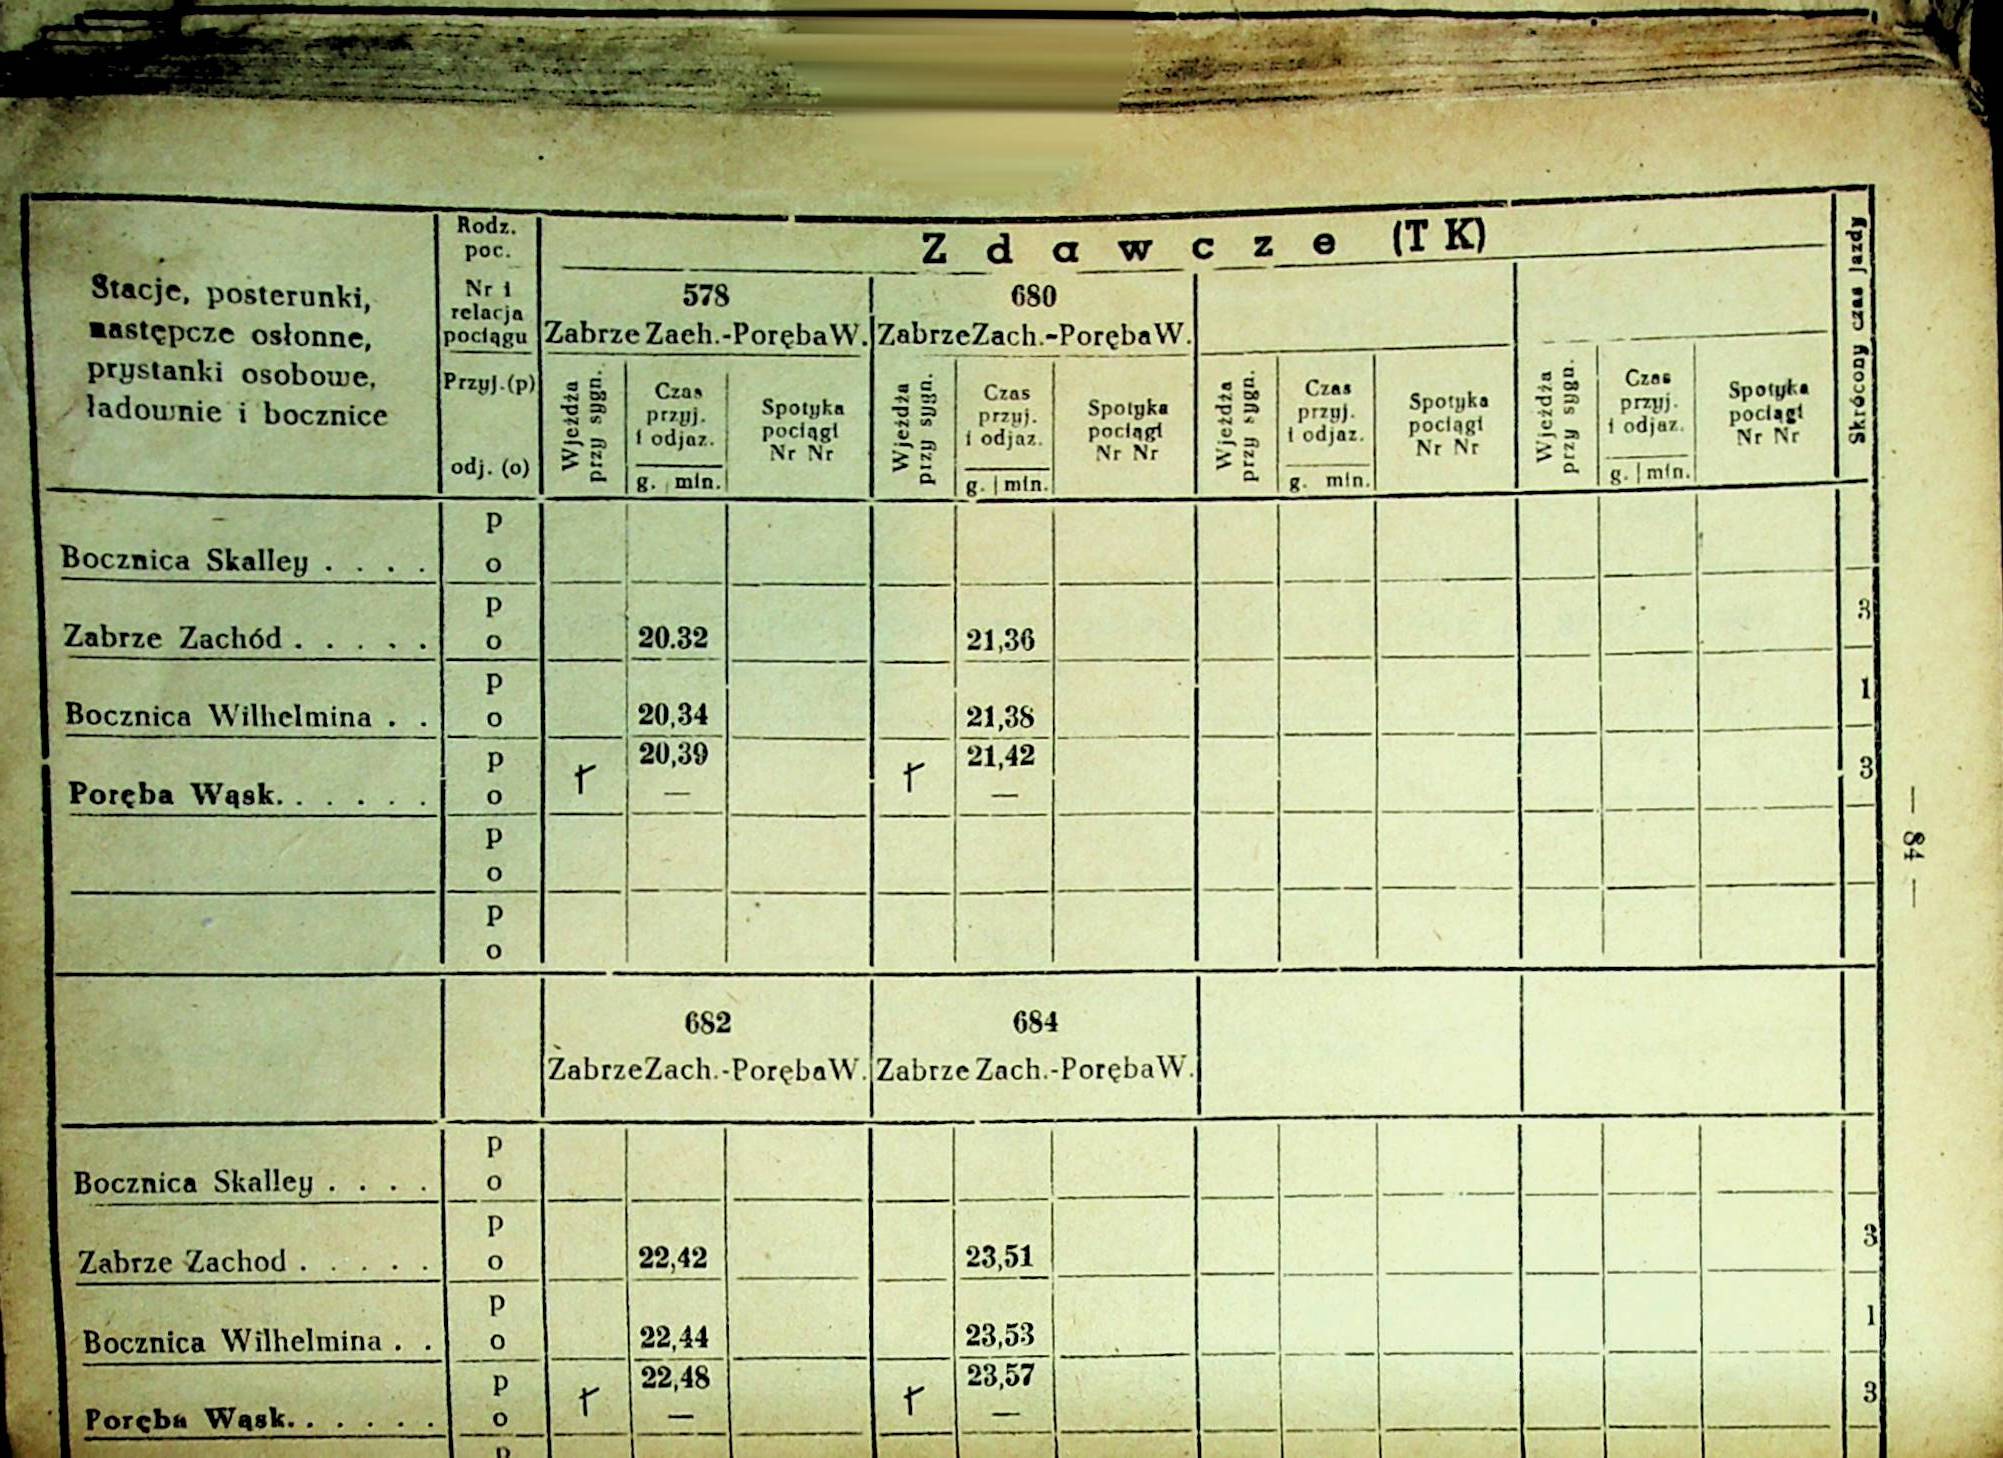 Zdawcze (TK)
Stacje, posterunki,
następcze osłonne,
prystanki osobowe,
ładownie i bocznice
Rodz.
poc.
Nr i
relacja
pociągu
Przyj.(p)
odj. (o)
578
Zabrze Zaeh.-Poręba W.
680
Zabrze Zach.-Poręba W.
Skrócony czas jazdy
Wjeżdża
przy sygn.
Czas
przyj.
i odjaz.
g. min.
Spotyka
pociągi
Nr Nr
Wjeżdża
przy sygn.
Czas
przyj.
i odjaz.
g. | min.
Spotyka
pociągi
Nr Nr
Wjeżdża
przy sygn.
Czas
przyj.
i odjaz.
g. min.
Spotyka
pociągi
Nr Nr
Wjeżdża
przy sygn.
Czas
przyj.
i odjaz.
g. | min.
Spotyka
pociągi
Nr Nr
p
Bocznica Skalley . . . . o
p 3
Zabrze Zachód . . . . . o 20.32 21,36
p 1
Bocznica Wilhelmina . . o 20,34 21,38
p 20,39 21,42 3
Poręba Wąsk. . . . . . o — —
p
o
p
o
— 84 —
682 684
Zabrze Zach.-Poręba W. Zabrze Zach.-Poręba W.
p
Bocznica Skalley . . . . o
p 3
Zabrze Zachod . . . . . o 22,42 23,51
p 1
Bocznica Wilhelmina . . o 22,44 23,53
p 22,48 23,57 3
Poręba Wąsk. . . . . . o — —
p